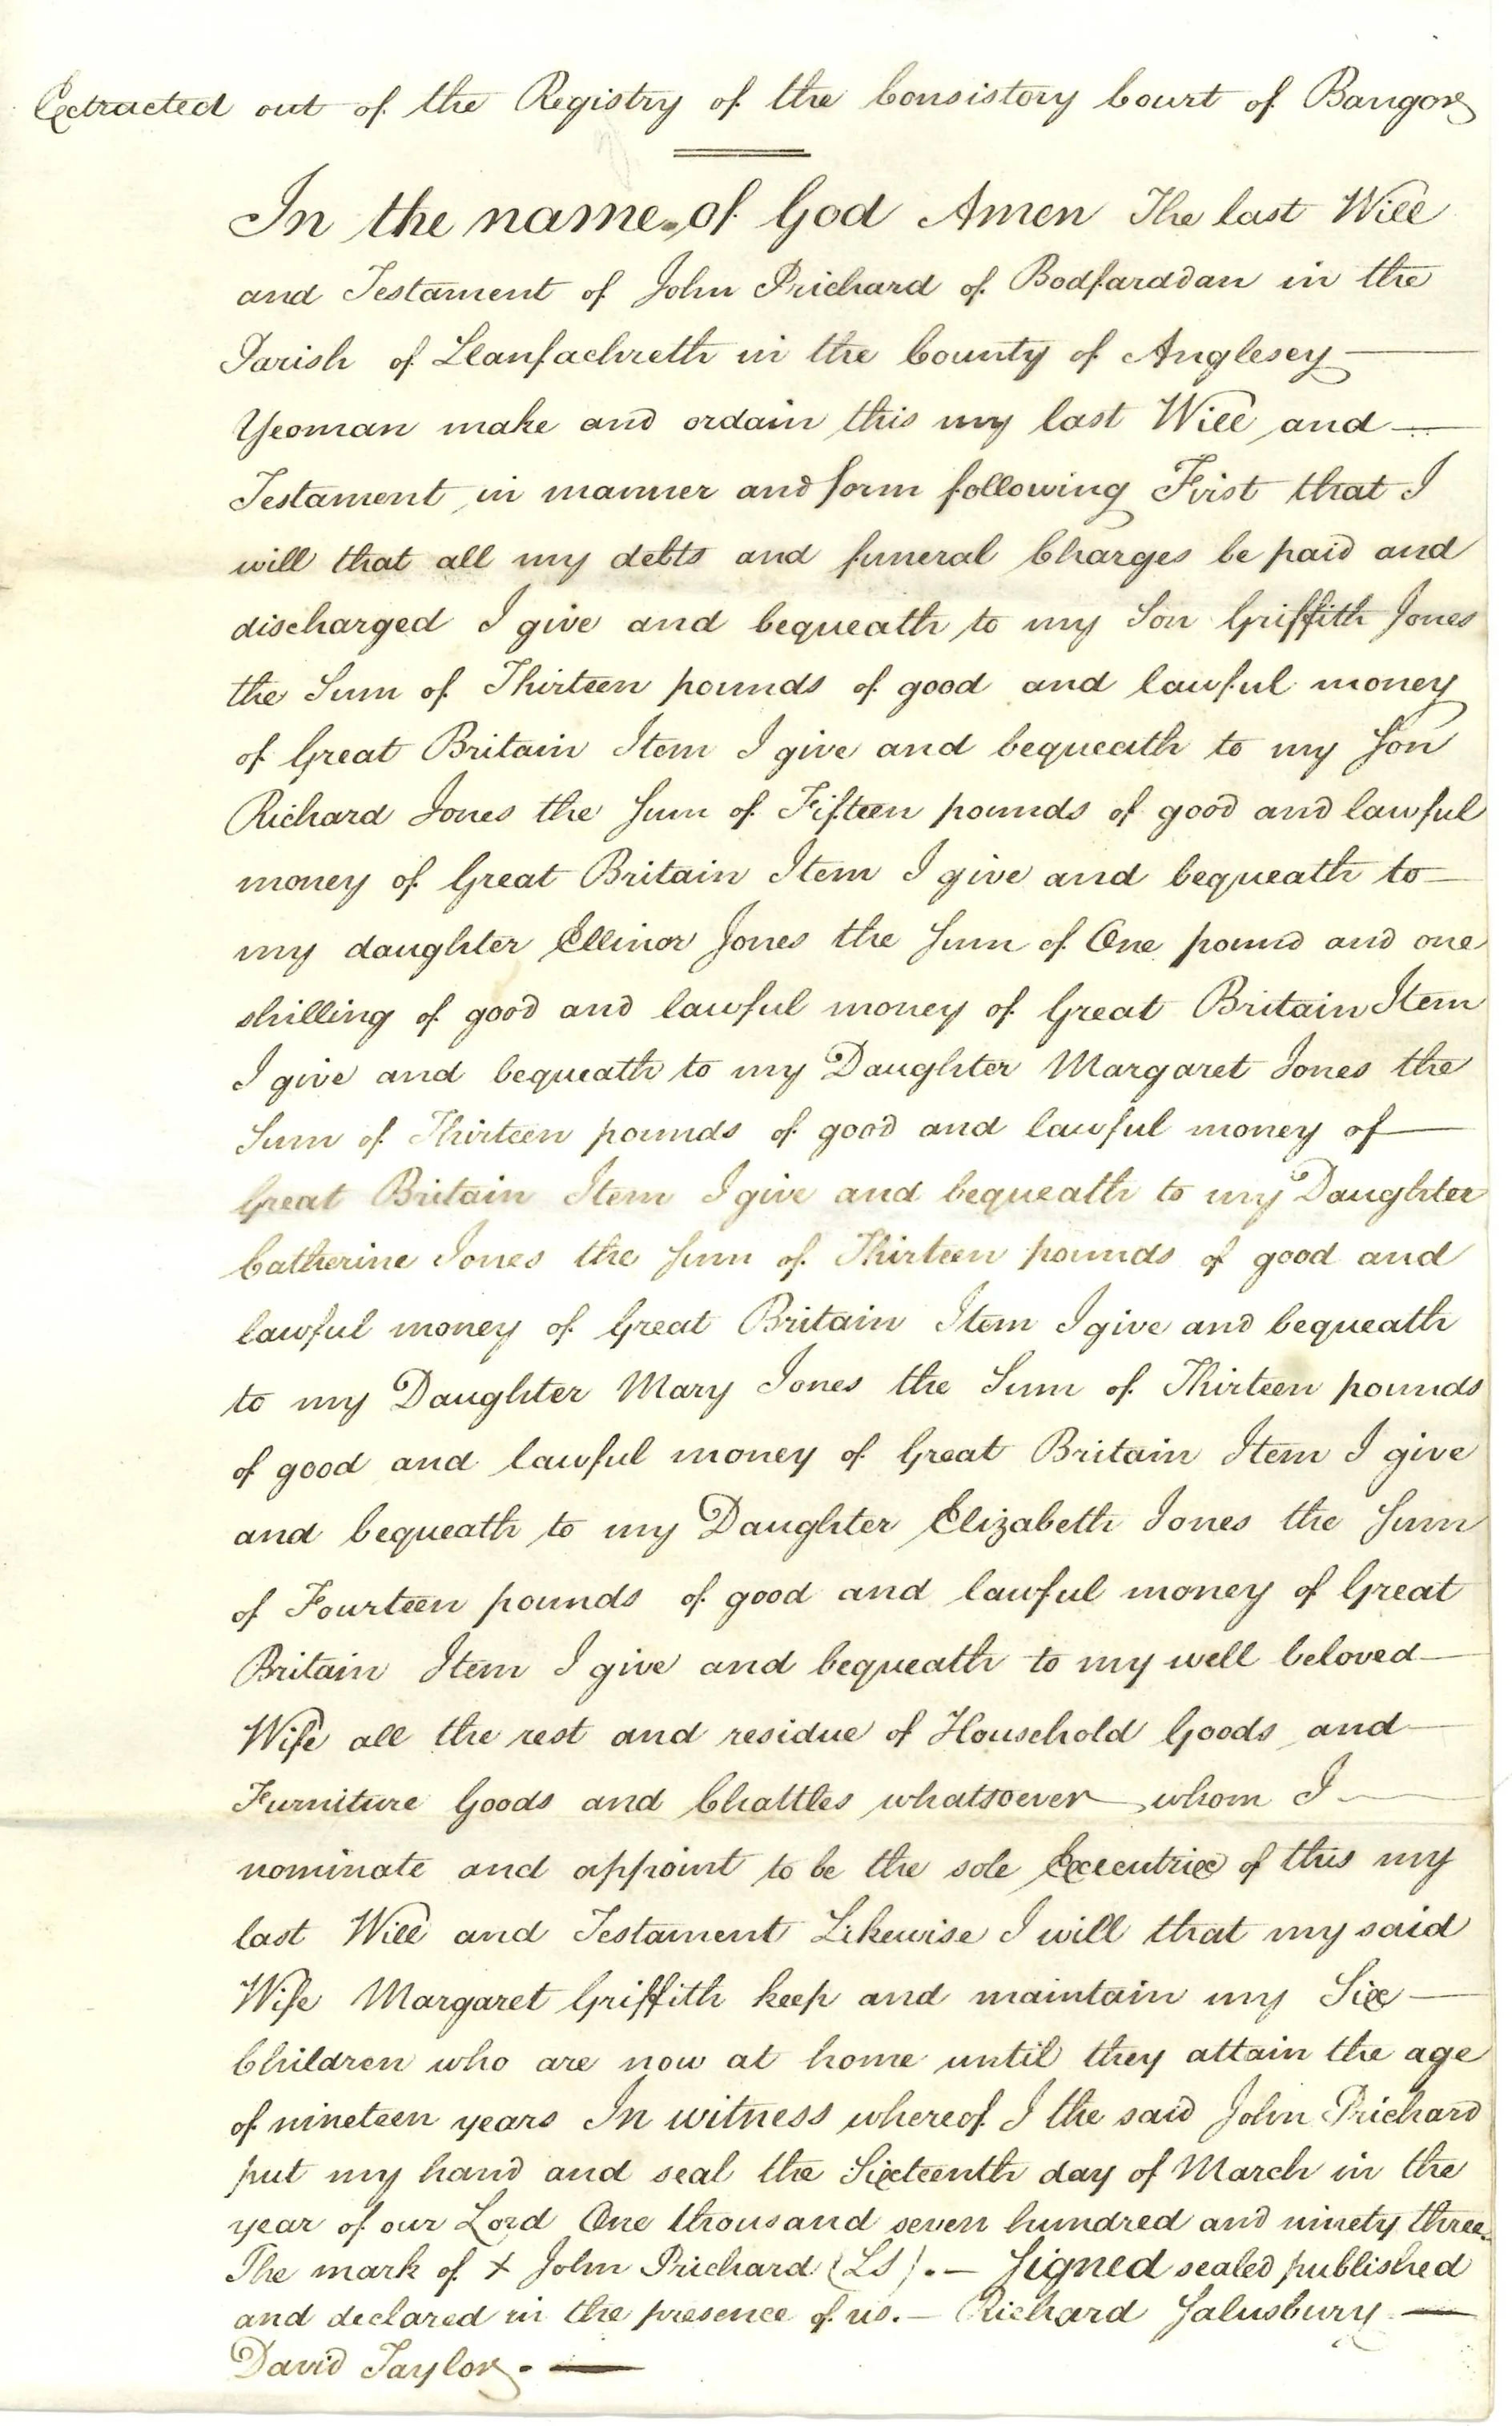 Extracted out of the Registry of the Consistory Court of Bangor
In the name of God Amen The last Will
and Testament of John Prichard of Bodfarddan in the
Parish of Llanfachreth in the County of Anglesey —
Yeoman make and ordain this my last Will and —
Testament in manner and form following First that I
will that all my debts and funeral Charges be paid and
discharged I give and bequeath to my Son Griffith Jones
the Sum of Thirteen pounds of good and lawful money
of Great Britain Item I give and bequeath to my Son
Richard Jones the Sum of Fifteen pounds of good and lawful
money of Great Britain Item I give and bequeath to —
my daughter Ellinor Jones the Sum of One pound and one
shilling of good and lawful money of Great Britain Item
I give and bequeath to my Daughter Margaret Jones the
Sum of Thirteen pounds of good and lawful money of —
Great Britain Item I give and bequeath to my Daughter
Catherine Jones the Sum of Thirteen pounds of good and
lawful money of Great Britain Item I give and bequeath
to my Daughter Mary Jones the Sum of Thirteen pounds
of good and lawful money of Great Britain Item I give
and bequeath to my Daughter Elizabeth Jones the Sum
of Fourteen pounds of good and lawful money of Great
Britain Item I give and bequeath to my well beloved —
Wife all the rest and residue of Household Goods and —
Furniture Goods and Chattles whatsoever whom I —
nominate and appoint to be the sole Executrix of this my
last Will and Testament Likewise I will that my said
Wife Margaret Griffith keep and maintain my Six —
Children who are now at home until they attain the age
of nineteen years In witness whereof I the said John Prichard
put my hand and seal the Sixteenth day of March in the
year of our Lord One thousand seven hundred and ninety three.
The mark of X John Prichard (LS). — Signed sealed published
and declared in the presence of us. — Richard Salusbury —
David Taylor. —